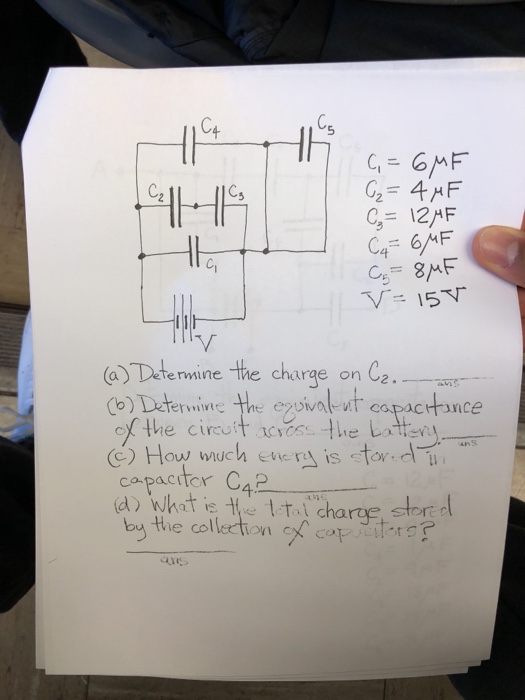 C4
C5
C2
C3
C1
V
C1 = 6μF
C2 = 4μF
C3 = 12μF
C4 = 6μF
C5 = 8μF
V = 15V
(a) Determine the charge on C2. ____ ans
(b) Determine the equivalent capacitance
of the circuit across the battery. ____ ans
(c) How much energy is stored in
capacitor C4? ____ ans
(d) What is the total charge stored
by the collection of capacitors?
____ ans